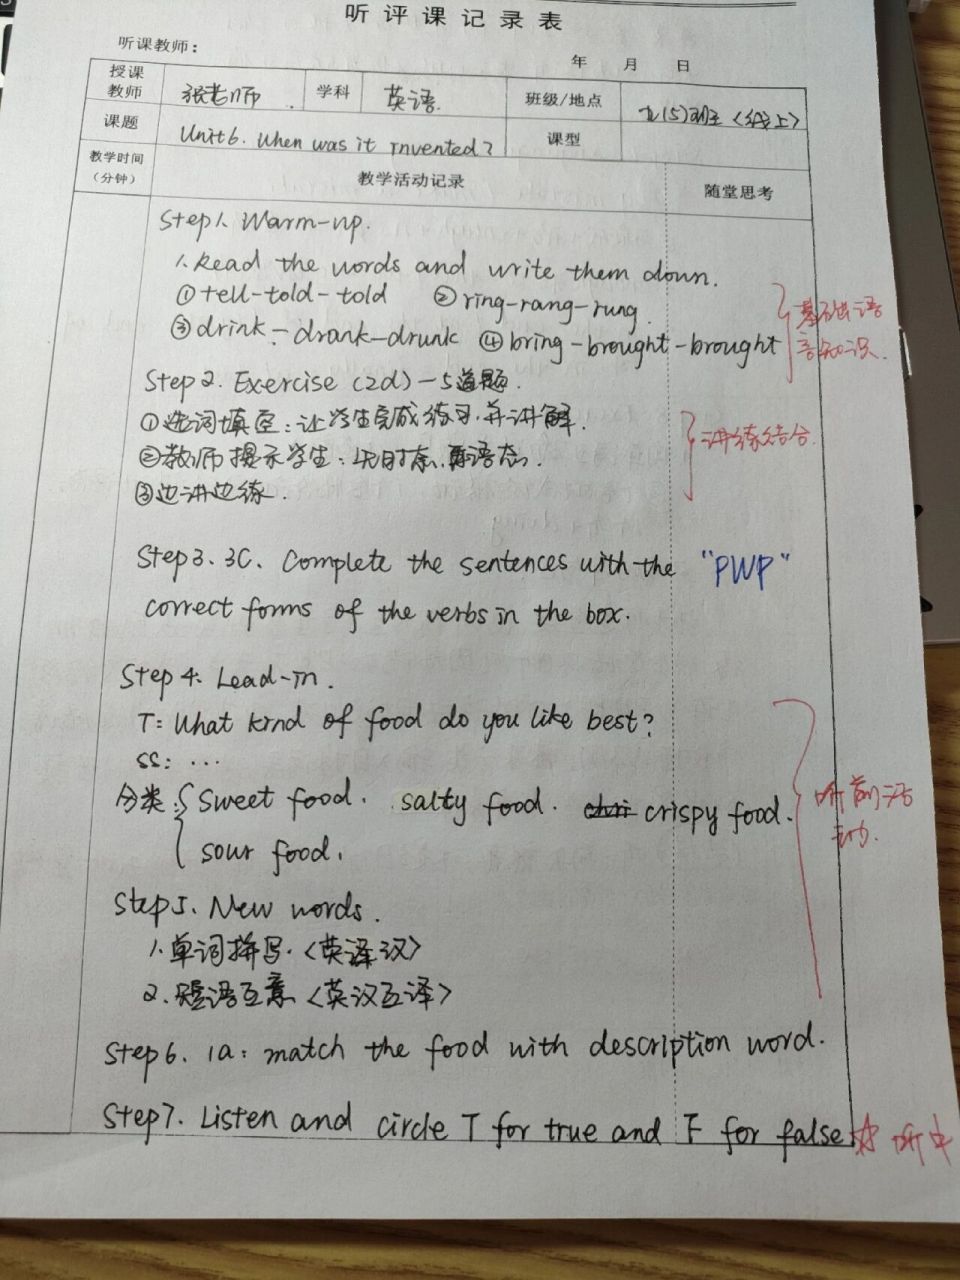 听评课记录表
听课教师：
年 月 日
授课教师 张老师. 学科 英语. 班级/地点 九(5)班<线上>
课题 Unit6. When was it invented? 课型
教学时间（分钟） 教学活动记录 随堂思考
Step1. Warm-up.
1. Read the words and write them down.
①tell-told-told ②ring-rang-rung.
③drink-drank-drunk ④bring-brought-brought
基础语
言知识.
Step2. Exercise (2d) - 5道题.
①选词填空：让学生完成练习.并讲解.
②教师提示学生：先时态.再语态.
③边讲边练.
讲练结合.
Step3. 3C. Complete the sentences with the "PWP"
correct forms of the verbs in the box.
Step4. Lead-in.
T: What kind of food do you like best?
SS: ...
分类：{ Sweet food. salty food. crispy food.
sour food.
听前活
动.
Step5. New words.
1. 单词拼写.<英译汉>
2. 短语互意<英汉互译>
Step6. 1a: match the food with description word.
Step7. Listen and circle T for true and F for false. ☆ 听中